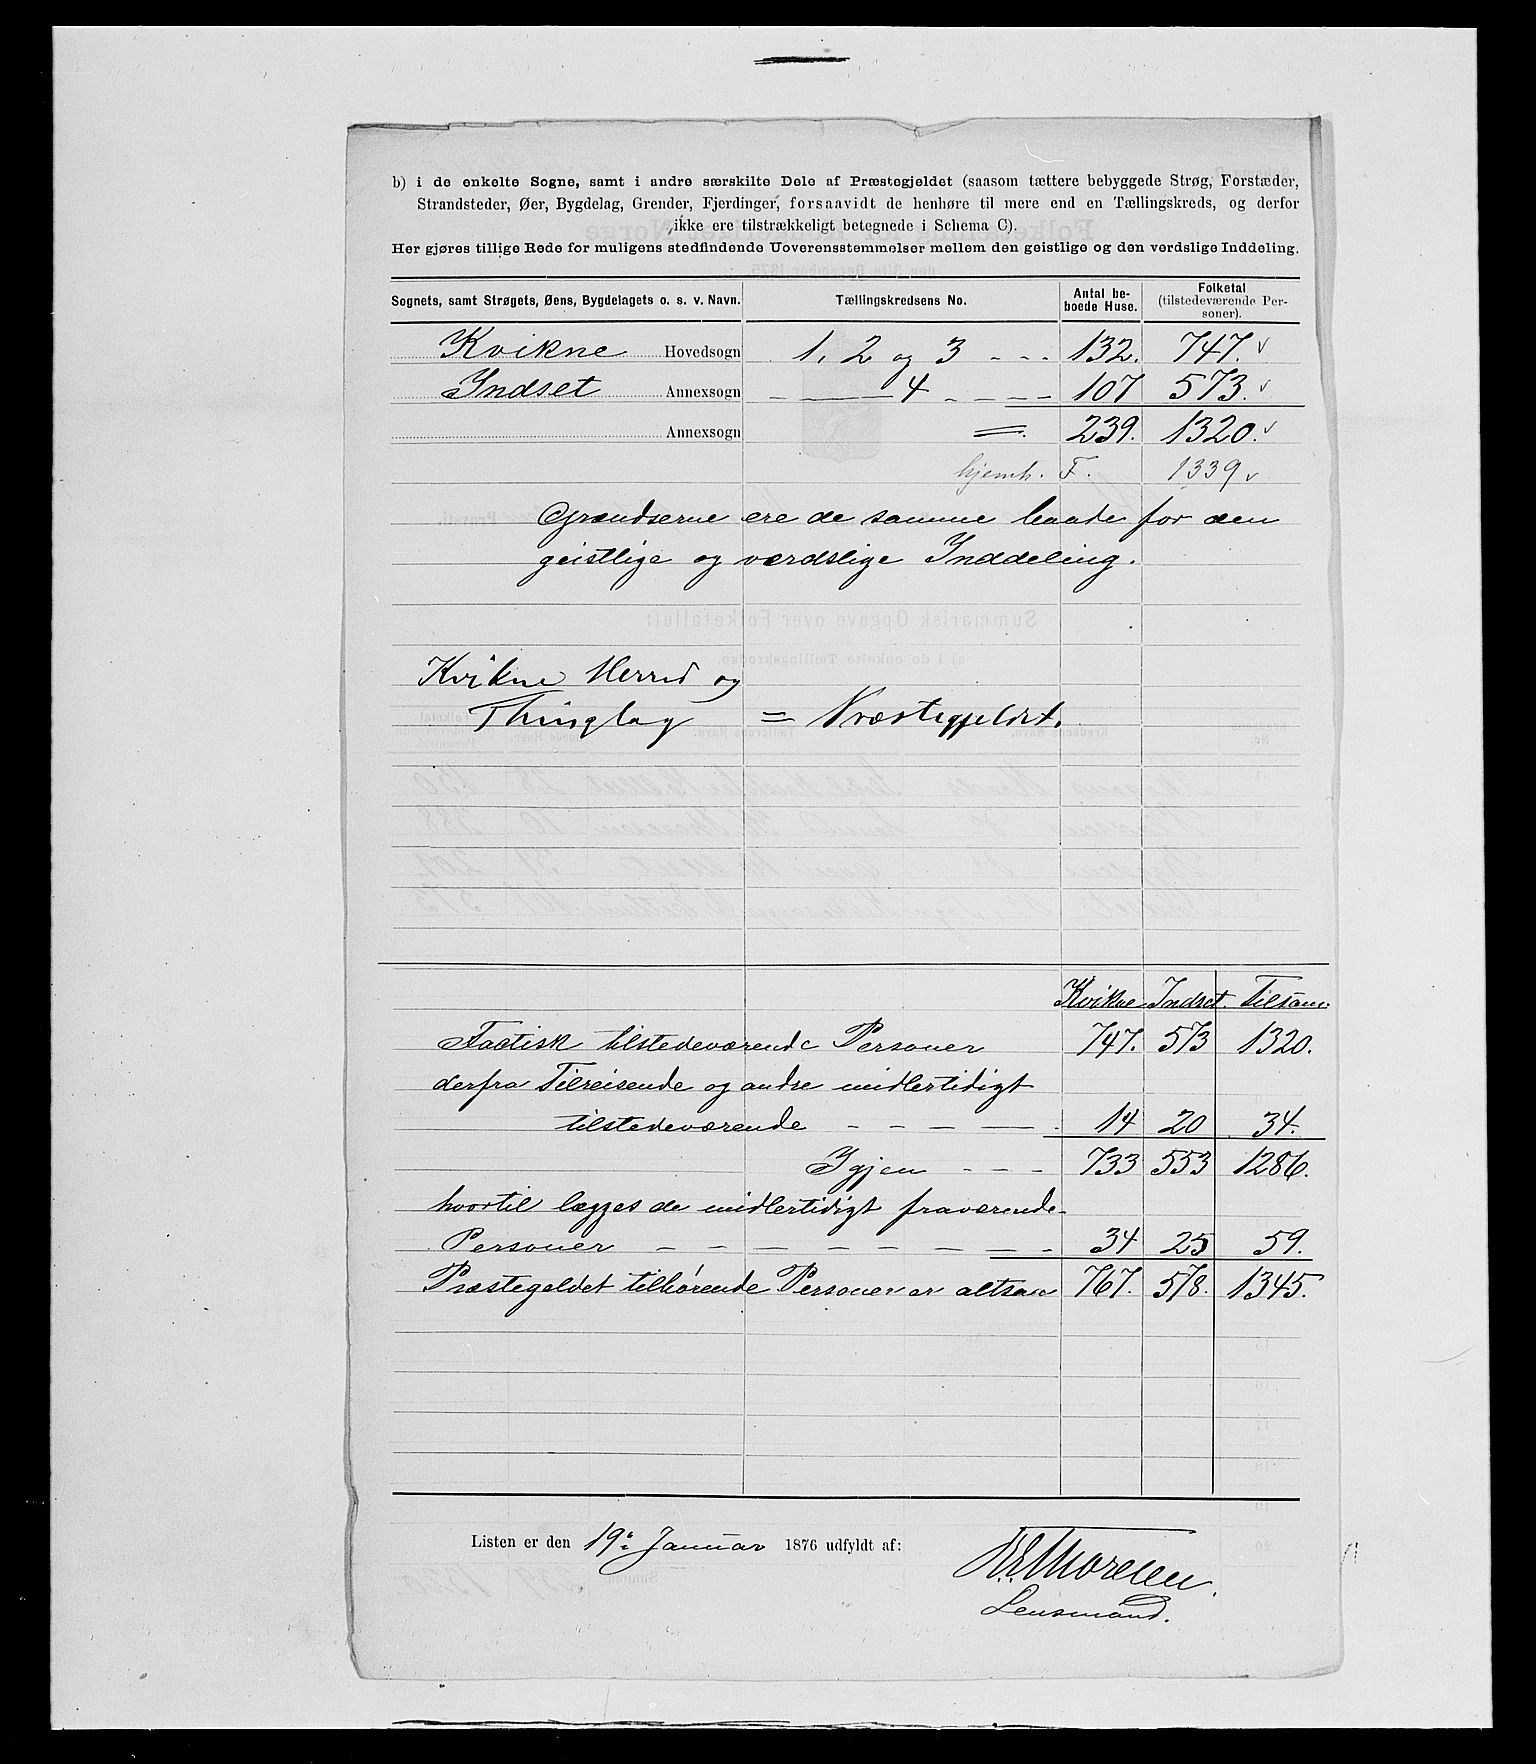 b) i de enkelte Sogne, samt i andre særskilte Dele af Præstegjeldet (saasom tættere bebyggede Strøg, Forstæder,
Strandsteder, Øer, Bygdelag, Grender, Fjerdinger, forsaavidt de henhøre til mere end en Tællingskreds, og derfor
ikke ere tilstrækkeligt betegnede i Schema C).
Her gjøres tillige Rede for muligens stedfindende Uoverensstemmelser mellem den geistlige og den verdslige Inddeling.
Sognets, samt Strøgets, Øens, Bygdelagets o. s. v. Navn. Tællingskredsens No. Antal beboede Huse. Folketal (tilstedeværende Personer).
Kvikne Hovedsogn 1, 2 og 3 - - - 132. 747.
Indset Annexsogn 4 - - - - 107 573.
Annexsogn = 239. 1320.
hjemh. F. 1339
Grændserne ere de samme baade for den
geistlige og værdslige Inddeling.
Kvikne Herred og
Thinglag = Præstegjeldet.
Kvikne Indset. Tilsam.
Factisk tilstedeværende Personer 747. 573 1320.
derfra Tilreisende og andre midlertidigt
tilstedeværende - - - - 14 20 34.
Igjen - - - 733 553 1286.
hvortil lægges de midlertidigt fraværende
Personer - - - - - - - - 34 25 59.
Præstegeldet tilhørende Personer er altsaa 767. 578. 1345.
Listen er den 19de Januar 1876 udfyldt af:
Lensmand.